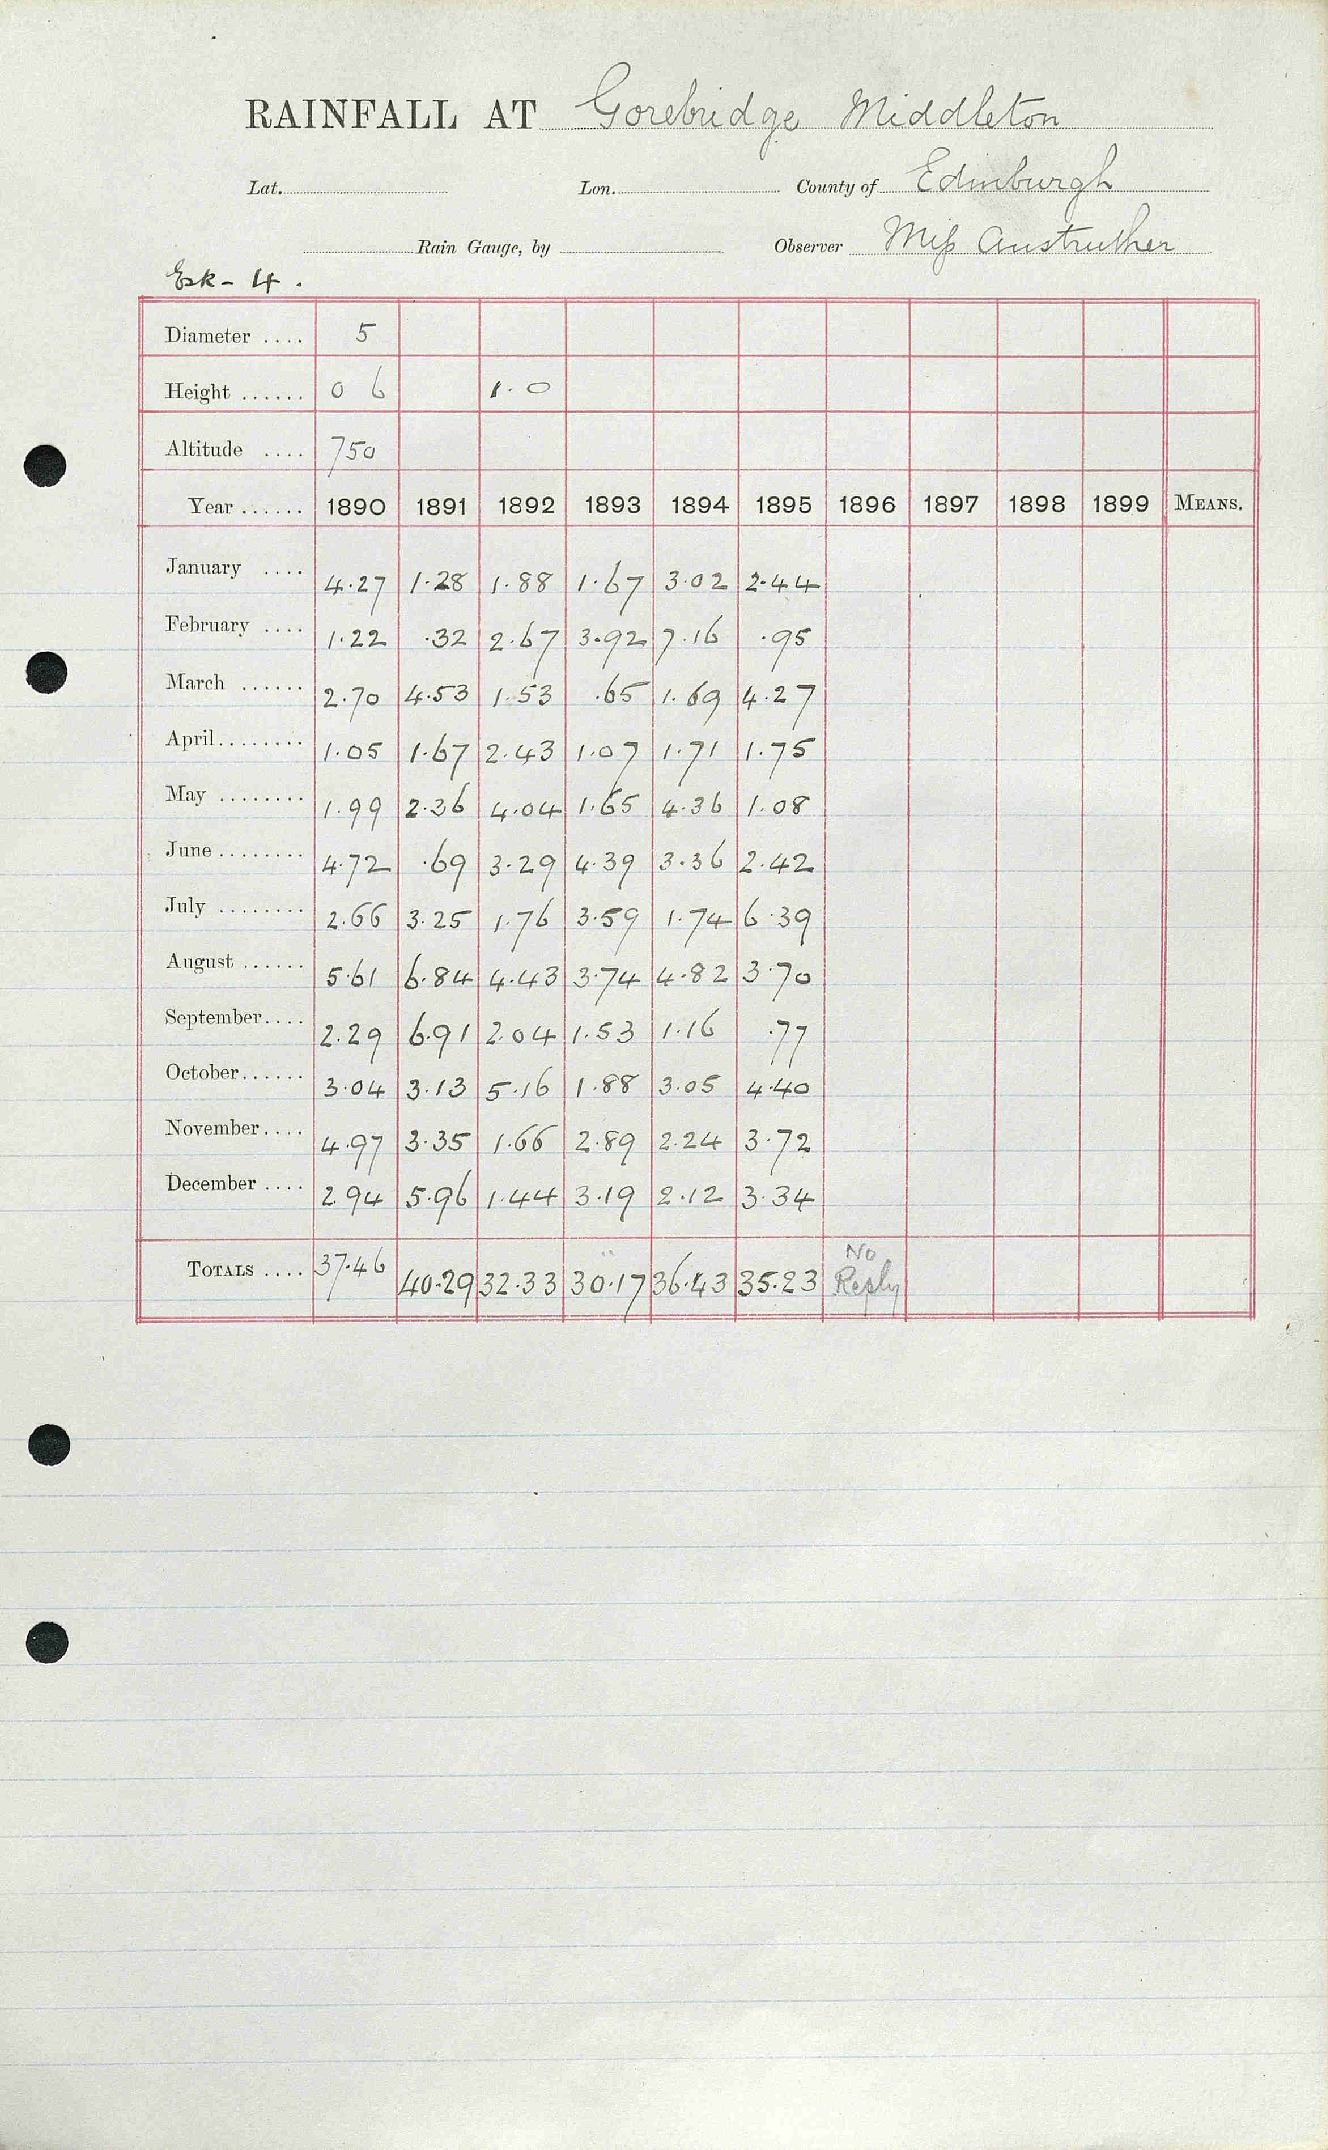 RAINFALL AT Gorebridge Middleton
Lat. Lon. County of Edinburgh
Rain Gauge, by Observer Miss Anstruther
Esk - 4 .
Diameter .... 5
Height ...... 0 6 1. 0
Altitude .... 750
Year ...... 1890 1891 1892 1893 1894 1895 1896 1897 1898 1899 MEANS.
January .... 4.27 1.28 1.88 1.67 3.02 2.44
February .... 1.22 .32 2.67 3.92 7.16 .95
March ...... 2.70 4.53 1.53 .65 1.69 4.27
April........ 1.05 1.67 2.43 1.07 1.71 1.75
May ........ 1.99 2.36 4.04 1.65 4.36 1.08
June ........ 4.72 .69 3.29 4.39 3.36 2.42
July ........ 2.66 3.25 1.76 3.59 1.74 6.39
August ...... 5.61 6.84 4.43 3.74 4.82 3.70
September.... 2.29 6.91 2.04 1.53 1.16 .77
October...... 3.04 3.13 5.16 1.88 3.05 4.40
November.... 4.97 3.35 1.66 2.89 2.24 3.72
December .... 2.94 5.96 1.44 3.19 2.12 3.34
TOTALS .... 37.46 40.29 32.33 30.17 36.43 35.23 No Reply